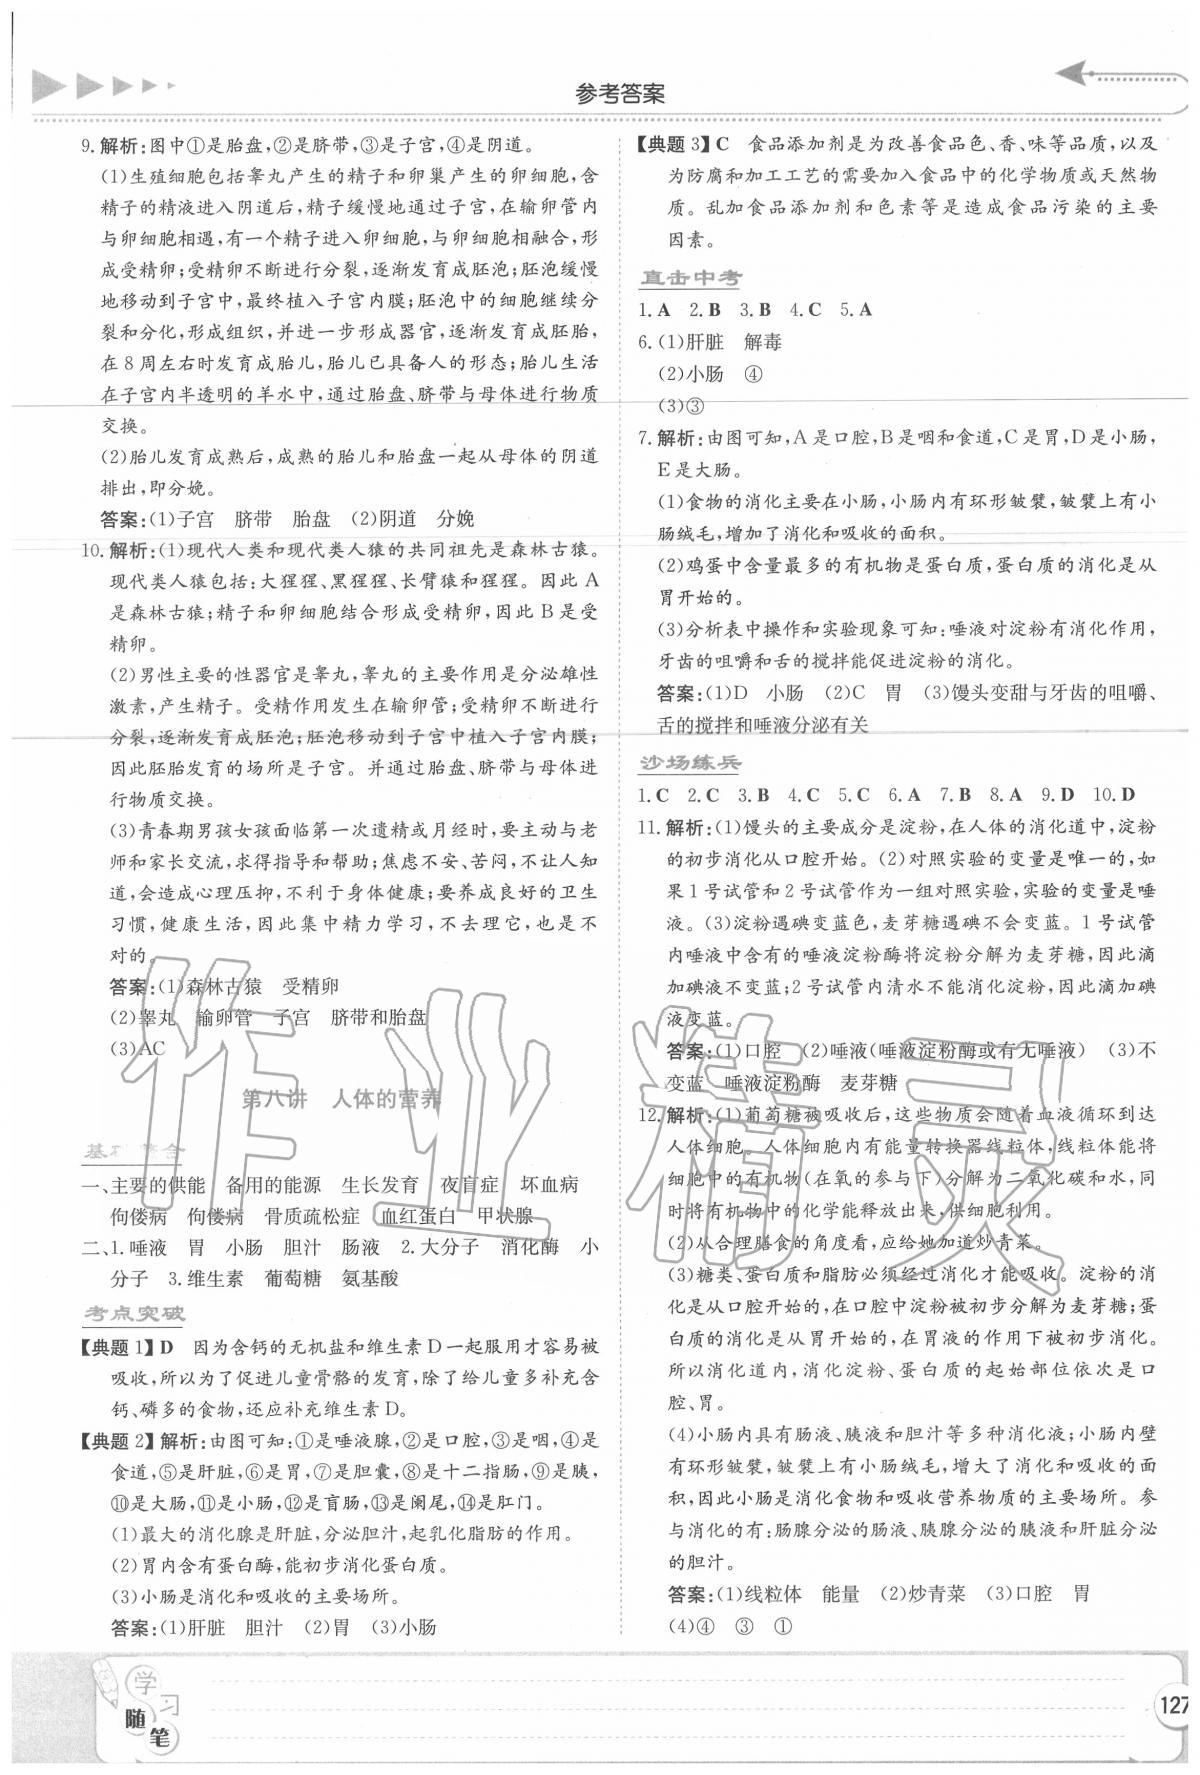 参考答案
9.解析:图中①是胎盘,②是脐带,③是子宫,④是阴道。
(1)生殖细胞包括睾丸产生的精子和卵巢产生的卵细胞,含
精子的精液进入阴道后,精子缓慢地通过子宫,在输卵管内
与卵细胞相遇,有一个精子进入卵细胞,与卵细胞相融合,形
成受精卵;受精卵不断进行分裂,逐渐发育成胚泡;胚泡缓慢
地移动到子宫中,最终植入子宫内膜;胚泡中的细胞继续分
裂和分化,形成组织,并进一步形成器官,逐渐发育成胚胎,
在8周左右时发育成胎儿,胎儿已具备人的形态;胎儿生活
在子宫内半透明的羊水中,通过胎盘、脐带与母体进行物质
交换。
(2)胎儿发育成熟后,成熟的胎儿和胎盘一起从母体的阴道
排出,即分娩。
答案:(1)子宫 脐带 胎盘 (2)阴道 分娩
10.解析:(1)现代人类和现代类人猿的共同祖先是森林古猿。
现代类人猿包括:大猩猩、黑猩猩、长臂猿和猩猩。因此A
是森林古猿;精子和卵细胞结合形成受精卵,因此B是受
精卵。
(2)男性主要的性器官是睾丸,睾丸的主要作用是分泌雄性
激素,产生精子。受精作用发生在输卵管;受精卵不断进行
分裂,逐渐发育成胚泡;胚泡移动到子宫中植入子宫内膜;
因此胚胎发育的场所是子宫。并通过胎盘、脐带与母体进
行物质交换。
(3)青春期男孩女孩面临第一次遗精或月经时,要主动与老
师和家长交流,求得指导和帮助;焦虑不安、苦闷,不让人知
道,会造成心理压抑,不利于身体健康;要养成良好的卫生
习惯,健康生活,因此集中精力学习,不去理它,也是不
对的。
答案:(1)森林古猿 受精卵
(2)睾丸 输卵管 子宫 脐带和胎盘
(3)AC
第八讲 人体的营养
基础整合
一、主要的供能 备用的能源 生长发育 夜盲症 坏血病
佝偻病 佝偻病 骨质疏松症 血红蛋白 甲状腺
二、1.唾液 胃 小肠 胆汁 肠液 2.大分子 消化酶 小
分子 3.维生素 葡萄糖 氨基酸
考点突破
【典题1】D 因为含钙的无机盐和维生素D一起服用才容易被
吸收,所以为了促进儿童骨骼的发育,除了给儿童多补充含
钙、磷多的食物,还应补充维生素D。
【典题2】解析:由图可知:①是唾液腺,②是口腔,③是咽,④是
食道,⑤是肝脏,⑥是胃,⑦是胆囊,⑧是十二指肠,⑨是胰,
⑩是大肠,⑪是小肠,⑫是盲肠,⑬是阑尾,⑭是肛门。
(1)最大的消化腺是肝脏,分泌胆汁,起乳化脂肪的作用。
(2)胃内含有蛋白酶,能初步消化蛋白质。
(3)小肠是消化和吸收的主要场所。
答案:(1)肝脏 胆汁 (2)胃 (3)小肠
【典题3】C 食品添加剂是为改善食品色、香、味等品质,以及
为防腐和加工工艺的需要加入食品中的化学物质或天然物
质。乱加食品添加剂和色素等是造成食品污染的主要
因素。
直击中考
1.A 2.B 3.B 4.C 5.A
6.(1)肝脏 解毒
(2)小肠 ④
(3)③
7.解析:由图可知,A是口腔,B是咽和食道,C是胃,D是小肠,
E是大肠。
(1)食物的消化主要在小肠,小肠内有环形皱襞,皱襞上有小
肠绒毛,增加了消化和吸收的面积。
(2)鸡蛋中含量最多的有机物是蛋白质,蛋白质的消化是从
胃开始的。
(3)分析表中操作和实验现象可知:唾液对淀粉有消化作用,
牙齿的咀嚼和舌的搅拌能促进淀粉的消化。
答案:(1)D 小肠 (2)C 胃 (3)馒头变甜与牙齿的咀嚼、
舌的搅拌和唾液分泌有关
沙场练兵
1.C 2.C 3.B 4.C 5.C 6.A 7.B 8.A 9.D 10.D
11.解析:(1)馒头的主要成分是淀粉,在人体的消化道中,淀粉
的初步消化从口腔开始。(2)对照实验的变量是唯一的,如
果1号试管和2号试管作为一组对照实验,实验的变量是唾
液。(3)淀粉遇碘变蓝色,麦芽糖遇碘不会变蓝。1号试管
内唾液中含有的唾液淀粉酶将淀粉分解为麦芽糖,因此滴
加碘液不变蓝;2号试管内清水不能消化淀粉,因此滴加碘
液变蓝。
答案:(1)口腔 (2)唾液(唾液淀粉酶或有无唾液) (3)不
变蓝 唾液淀粉酶 麦芽糖
12.解析:(1)葡萄糖被吸收后,这些物质会随着血液循环到达
人体细胞。人体细胞内有能量转换器线粒体,线粒体能将
细胞中的有机物(在氧的参与下)分解为二氧化碳和水,同
时将有机物中的化学能释放出来,供细胞利用。
(2)从合理膳食的角度看,应给她加道炒青菜。
(3)糖类、蛋白质和脂肪必须经过消化才能吸收。淀粉的消
化是从口腔开始的,在口腔中淀粉被初步分解为麦芽糖;蛋
白质的消化是从胃开始的,在胃液的作用下被初步消化。
所以消化道内,消化淀粉、蛋白质的起始部位依次是口
腔、胃。
(4)小肠内具有肠液、胰液和胆汁等多种消化液;小肠内壁
有环形皱襞,皱襞上有小肠绒毛,增大了消化和吸收的面
积,因此小肠是消化食物和吸收营养物质的主要场所。参
与消化的有:肠腺分泌的肠液、胰腺分泌的胰液和肝脏分泌
的胆汁。
答案:(1)线粒体 能量 (2)炒青菜 (3)口腔 胃
(4)④ ③ ①
作业精灵
学习随笔
127